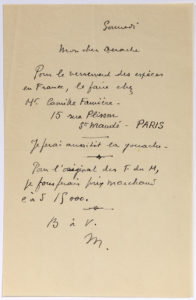 Samedi
Mon cher Denache
Pour le versement des espèces
en France, le faire chez
Mr Camille Famière -
15 rue Plisson
St Mandé - PARIS
Je ferai aussitôt la gouache -
Pour l'original des F. du M,
je ferais prix marchand
c à d 15000.
B à V.
M.